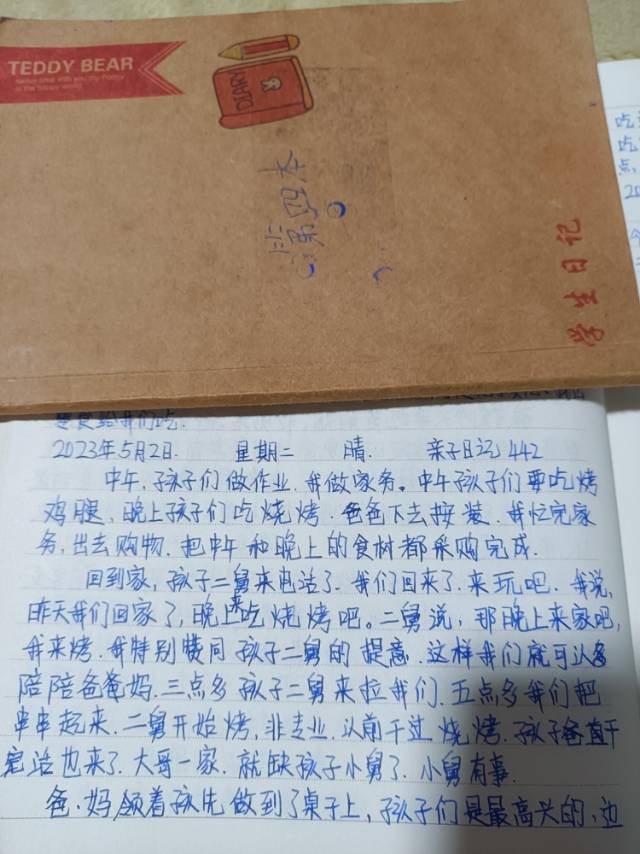 TEDDY BEAR
DIARY
第四本
学生日记
零食给我们吃.
2023年5月2日. 星期二 晴. 亲子日记442
中午,孩子们做作业.我做家务。中午孩子们要吃烤
鸡腿,晚上孩子们吃烧烤.爸爸下去按装.我忙完家
务,出去购物.把中午和晚上的食材都采购完成.
回到家,孩子二舅来电话了.我们回来了.来玩吧.我说,
昨天我们回家了,晚上来吃烧烤吧。二舅说,那晚上来家吧,
我来烤.我特别赞同孩子二舅的提意.这样我们就可以多
陪陪爸爸妈.三点多孩子二舅来拉我们.五点多我们把
串串起来.二舅开始烤,非专业.以前干过烧烤.孩子爸直干
完活也来了.大哥一家.就缺孩子小舅了.小舅有事.
爸.妈领着孩先做到了桌子上,孩子们是最高兴的,边
吃
吃
点,
20